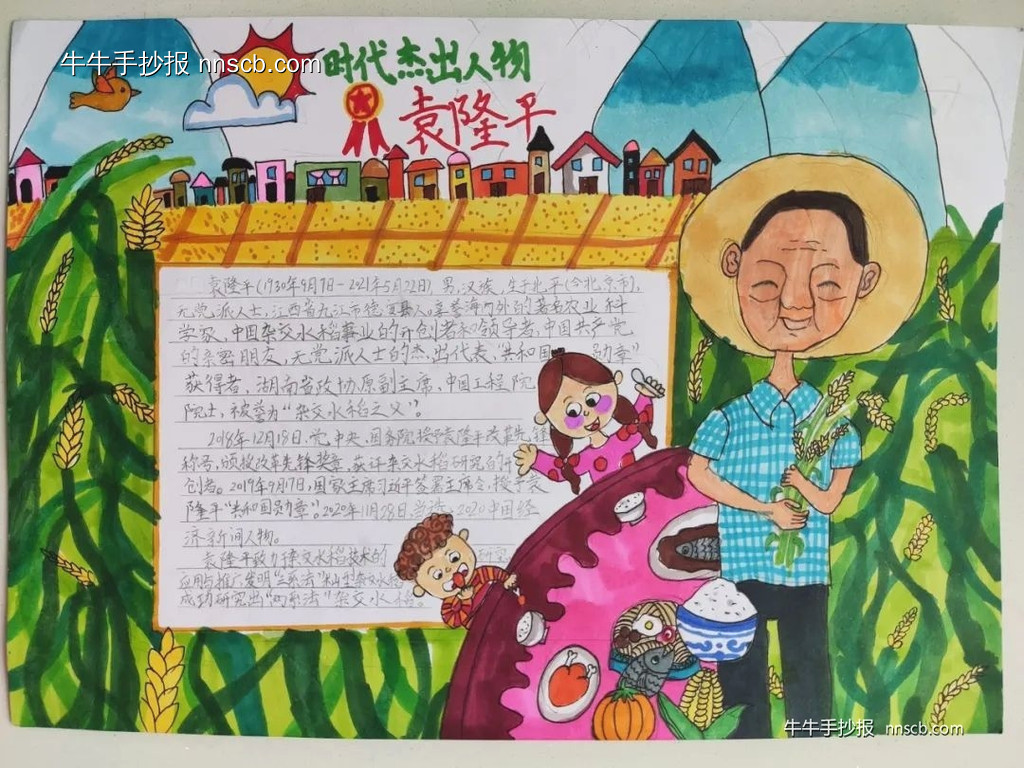 牛牛手抄报 nnscb.com
时代杰出人物
袁隆平
袁隆平(1930年9月7日-2021年5月22日),男,汉族,生于北平(今北京市),
无党派人士,江西省九江市德安县人。享誉海内外的著名农业科
学家,中国杂交水稻事业的开创者和领导者,中国共产党
的亲密朋友,无党派人士的杰出代表,"共和国勋章"
获得者,湖南省政协原副主席,中国工程院
院士,被誉为"杂交水稻之父"。
2018年12月18日,党中央、国务院授予袁隆平改革先锋
称号,颁授改革先锋奖章,获评杂交水稻研究的开
创者。2019年9月17日,国家主席习近平签署主席令,授予袁
隆平"共和国勋章"。2020年11月28日,当选2020中国经
济新闻人物。
袁隆平致力杂交水稻技术的研究
应用与推广,发明"三系法"籼型杂交水稻
成功研究出"两系法"杂交水稻。
牛牛手抄报 nnscb.com